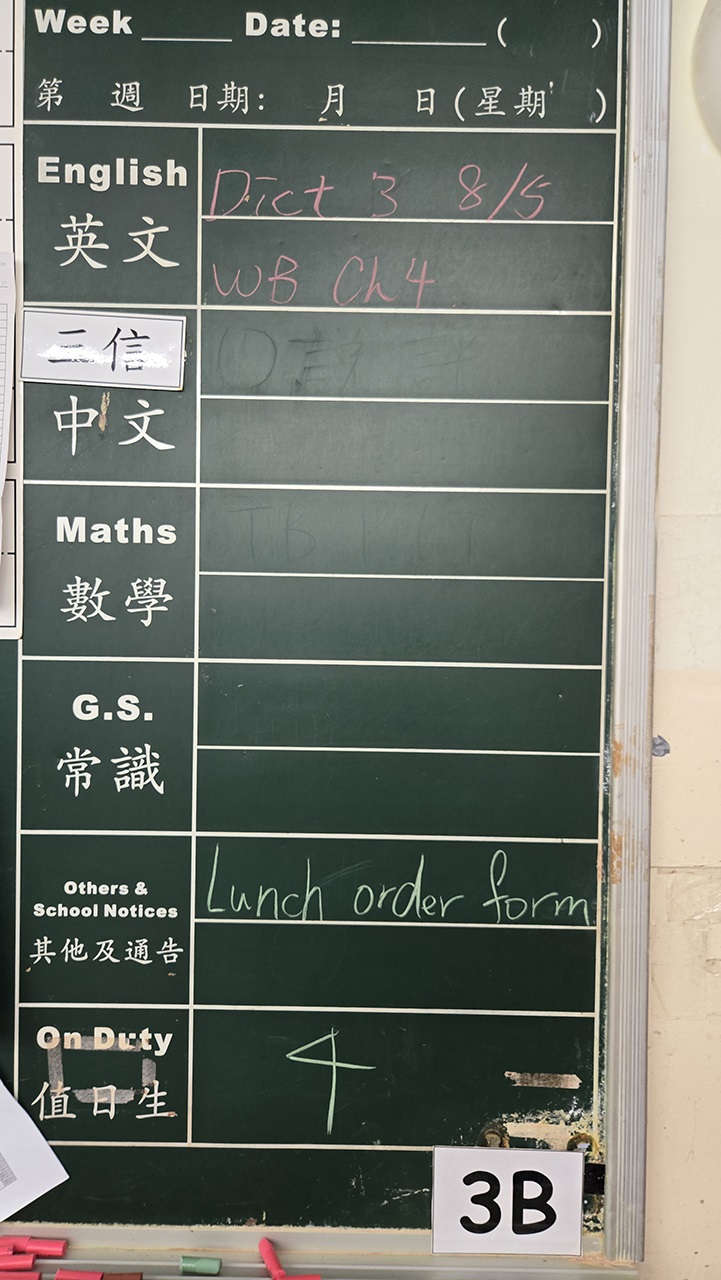 Week _____ Date: ________ ( )
第 週 日期: 月 日(星期 )
English
Dict 3 8/5
英文
WB Ch4
三信
中文
Maths
數學
G.S.
常識
Others &
School Notices
Lunch order form
其他及通告
On Duty
4
值日生
3B